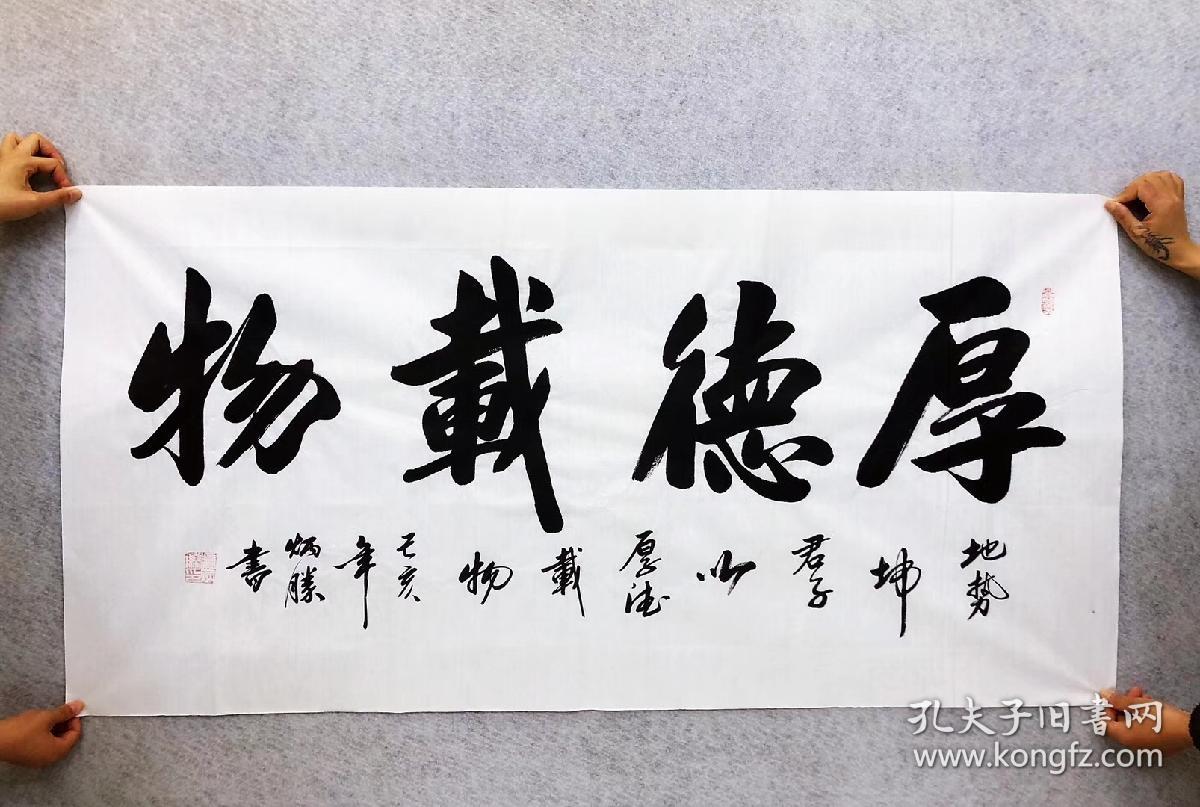 厚德載物
地势坤君子以厚德載物己亥年炳勝書
孔夫子旧書网
www.kongfz.com